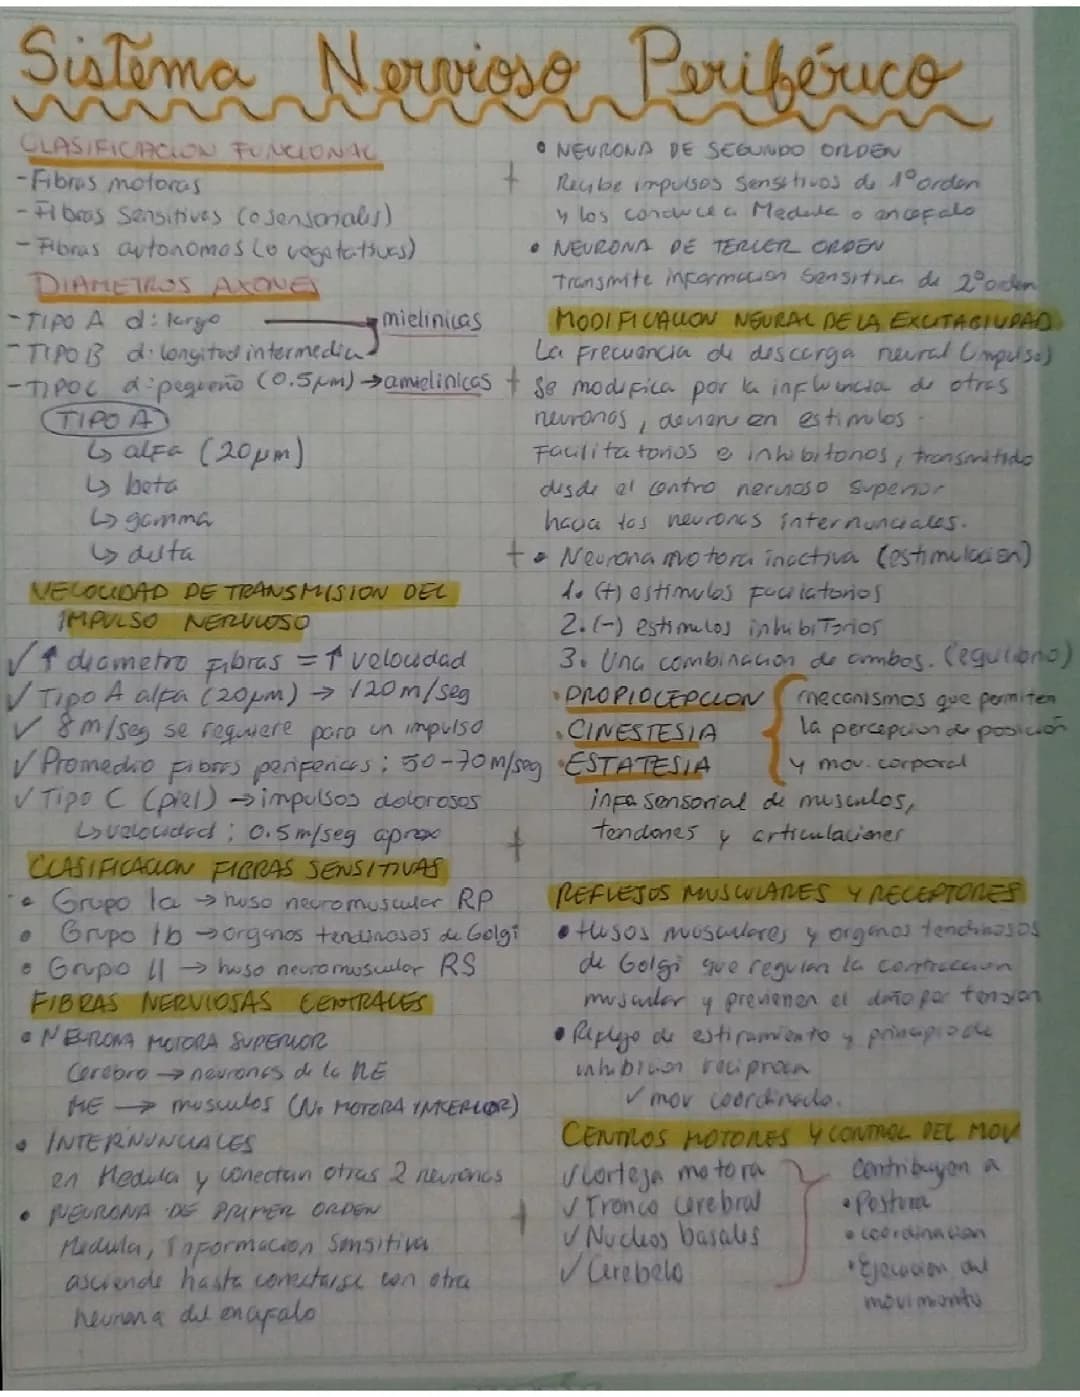 Sistema Nervioso Periférico
CLASIFICACION FUNCIONAL
- Fibras motoras
- Fibras Sensitivas (o sensoriales)
- Fibras autonomas (o vegetativas)
DIAMETROS AXONES
- TIPO A d: largo
- TIPO B d: longitud intermedia
mielinicas
- TIPO C d: pequeño (0.5µm) → amielinicas
TIPO A
↳ alfa (20µm)
↳ beta
↳ gamma
↳ delta
VELOCIDAD DE TRANSMISION DEL
IMPULSO NERVIOSO
✓ ↑ diametro fibras = ↑ velocidad
✓ Tipo A alfa (20µm) → 120 m/seg
✓ 8 m/seg se requiere para un impulso
✓ Promedio fibras perifericas: 50-70 m/seg
✓ Tipo C (piel) → impulsos dolorosos
↳ velocidad: 0.5 m/seg aprox
CLASIFICACION FIBRAS SENSITIVAS
• Grupo Ia → huso neuromuscular RP
• Grupo Ib → organos tendinosos de Golgi
• Grupo II → huso neuromuscular RS
FIBRAS NERVIOSAS CENTRALES
• NEURONA MOTORA SUPERIOR
Cerebro → neuronas de la ME
ME → musculos (N. MOTORA INFERIOR)
• INTERNUNCIALES
en Medula y conectan otras 2 neuronas
• NEURONA DE PRIMER ORDEN
Medula, Informacion Sensitiva
asciende hasta conectarse con otra
neurona del encefalo
• NEURONA DE SEGUNDO ORDEN
Recibe impulsos Sensitivos de 1° orden
y los conduce a Medula o encefalo
• NEURONA DE TERCER ORDEN
Transmite informacion Sensitiva de 2° orden
MODIFICACION NEURAL DE LA EXCITABILIDAD
La Frecuencia de descarga neural (impulso)
Se modifica por la influencia de otras
neuronas, en estimulos
Facilitatorios e inhibitorios, transmitido
desde el centro nervioso Superior
hacia las neuronas internunciales.
• Neurona motora inactiva (estimulacion)
1. (+) estimulos facilatorios
2. (-) estimulos inhibiTorios
3. Una combinacion de ambos.
• PROPIOCEPCION
• CINESTESIA
• ESTATESIA
mecanismos que permiten
la percepcion de posición
y mov. corporal
info sensorial de musculos,
tendones y articulaciones
REFLEJOS MUSCULARES Y RECEPTORES
• Husos musculares y organos tendinosos
de Golgi que regulan la contraccion
muscular y previenen el daño por tension
• Reflejo de estiramiento y principio de
inhibicion reciproca
✓ mov coordinado.
CENTROS MOTORES Y CONTROL DEL MOV
✓ Corteza motora
✓ Tronco Cerebral
✓ Nucleos basales
✓ Cerebelo
Contribuyen a
• Postura
• coordinacion
• Ejecucion del
movimiento